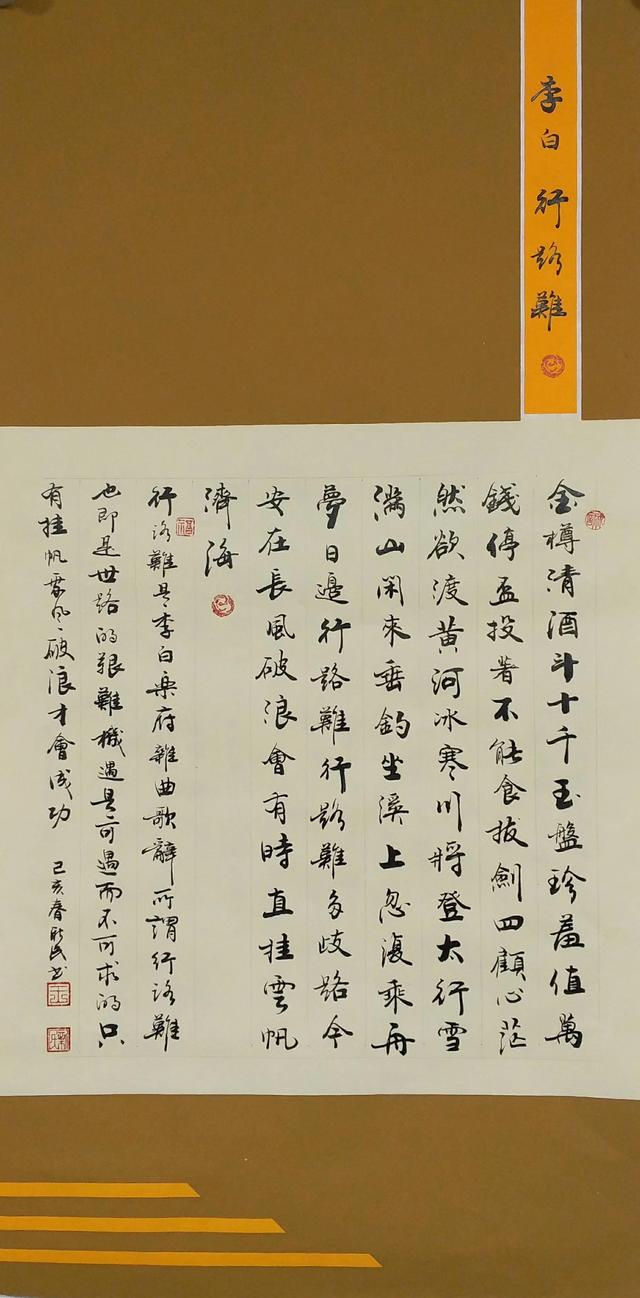 李白 行路難
金樽清酒斗十千玉盤珍羞值萬
錢停盃投著不能食拔劍四顧心茫
然欲渡黃河冰寒川將登太行雪
滿山閑來垂釣坐溪上忽復乘舟
夢日邊行路難行路難多歧路今
安在長風破浪會有時直挂雲帆
濟海
行路難是李白樂府雜曲歌辭所謂行路難
也即是世路的艱難機遇是可遇而不可求的只
有挂帆乘風破浪才會成功 己亥春 民书